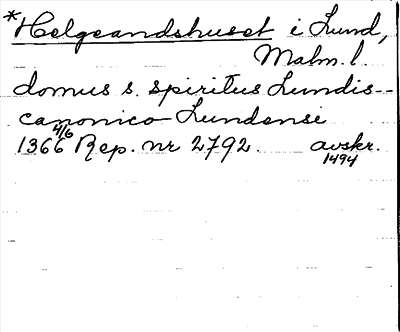 *Helgeandshuset i Lund,
Malm. l.
domus s. spiritus Lundis--
canonico Lundensi
1366 4/6 Rep. nr 2792. avskr.
1494